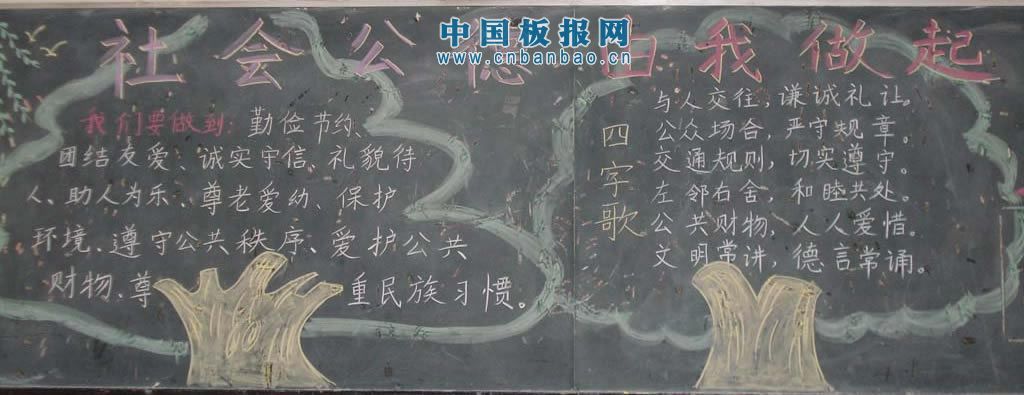 中国板报网
www.cnbanbao.cn
社会公德由我做起
我们要做到：勤俭节约、
团结友爱、诚实守信、礼貌待
人、助人为乐、尊老爱幼、保护
环境、遵守公共秩序、爱护公共
财物、尊重民族习惯。
四字歌
与人交往，谦诚礼让。
公众场合，严守规章。
交通规则，切实遵守。
左邻右舍，和睦共处。
公共财物，人人爱惜。
文明常讲，德言常诵。